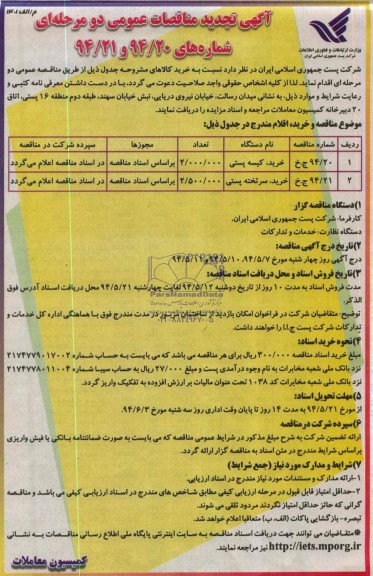 م/الف ۱۴۰۱
آگهی تجدید مناقصات عمومی دو مرحله‌ای
شماره‌های ۹۴/۲۰ و ۹۴/۲۱
وزارت ارتباطات و فناوری اطلاعات
شرکت پست جمهوری اسلامی ایران
شرکت پست جمهوری اسلامی ایران در نظر دارد نسبت به خرید کالاهای مشروحه جدول ذیل از طریق مناقصه عمومی دو
مرحله ای اقدام نماید. لذا از کلیه اشخاص حقوقی واجد صلاحیت دعوت می گردد، با در دست داشتن معرفی نامه کتبی و
رعایت شرایط و موارد ذیل، به نشانی میدان رسالت، خیابان نیروی دریایی، نبش خیابان سهند، طبقه دوم منطقه ۱۶ پستی، اتاق
۲۰ دبیرخانه کمیسیون معاملات مراجعه و اسناد مزایده را دریافت نمایند.
موضوع مناقصه و خرید، اقلام مندرج در جدول ذیل:
ردیف شماره مناقصه نام دستگاه تعداد مجوزها سپرده شرکت در مناقصه
۱ ۹۴/۲۰ ج.خ خرید، کیسه پستی ۲/۰۰۰/۰۰۰ براساس اسناد مناقصه در اسناد مناقصه اعلام می گردد
۲ ۹۴/۲۱ ج.خ خرید، سرتخته پستی ۲/۵۰۰/۰۰۰ براساس اسناد مناقصه در اسناد مناقصه اعلام می گردد
۱) دستگاه مناقصه گزار
کارفرما: شرکت پست جمهوری اسلامی ایران.
دستگاه نظارت: خدمات و تدارکات
۲) تاریخ درج آگهی مناقصه:
درج آگهی روز چهار شنبه مورخ ۹۴/۵/۷، ۹۴/۵/۱۰ و ۹۴/۵/۱۱
۳) تاریخ فروش اسناد و محل دریافت اسناد مناقصه:
مدت فروش اسناد به مدت ۱۰ روز از تاریخ دوشنبه ۹۴/۵/۱۲ لغایت چهارشنبه ۹۴/۵/۲۱ محل دریافت اسناد آدرس فوق
الذکر.
توضیح: متقاضیان شرکت در فراخوان امکان بازدید از ساختمان مزبور در مدت مندرج فوق با هماهنگی اداره کل خدمات و
تدارکات شرکت پست ج.ا.ا را خواهند داشت.
۴) نحوه خرید اسناد:
مبلغ خرید اسناد مناقصه ۳۰۰/۰۰۰ ریال برای هر مناقصه می باشد که می بایست به حساب شماره ۲۱۷۴۷۷۹۰۱۷۰۰۲
نزد بانک ملی شعبه مخابرات به نام وجوه درآمدی پست و مبلغ ۲۷/۰۰۰ ریال به حساب سیبا شماره ۲۱۷۴۷۷۸۰۱۱۰۰۴
نزد بانک ملی شعبه مخابرات کد ۱۰۳۸ تحت عنوان مالیات بر ارزش افزوده به تفکیک واریز گردد.
۵) مهلت تحویل اسناد:
از مورخ ۹۴/۵/۲۱ به مدت ۱۴ روز تا پایان وقت اداری روز سه شنبه مورخ ۹۴/۶/۳.
۶) سپرده شرکت در مناقصه
ارائه تضمین به شرح مبلغ مذکور در شرایط عمومی مناقصه که می بایست به صورت ضمانتنامه بانکی یا فیش واریزی
براساس شرایط مندرج در متن اسناد به مناقصه گزار ارائه گردد.
۷) شرایط و مدارک مورد نیاز (جمع شرایط)
۱- ارائه مدارک و مستندات مورد نیاز مندرج در اسناد ارزیابی.
۲- حداقل امتیاز قابل قبول در مرحله ارزیابی کیفی مطابق شاخص های مندرج در اسناد ارزیابی کیفی می باشد و مناقصه
گرانی که حائز حداقل امتیاز نگردند مردود تلقی می شوند.
تبصره- بازگشایی پاکات (الف، ب) متعاقبا اعلام خواهد شد.
* متقاضیان می توانند جهت دریافت اسناد مناقصه به سایت اینترنتی پایگاه ملی اطلاع رسانی مناقصات به نشانی
http://iets.mporg.ir نیز مراجعه نمایند.
کمیسیون معاملات